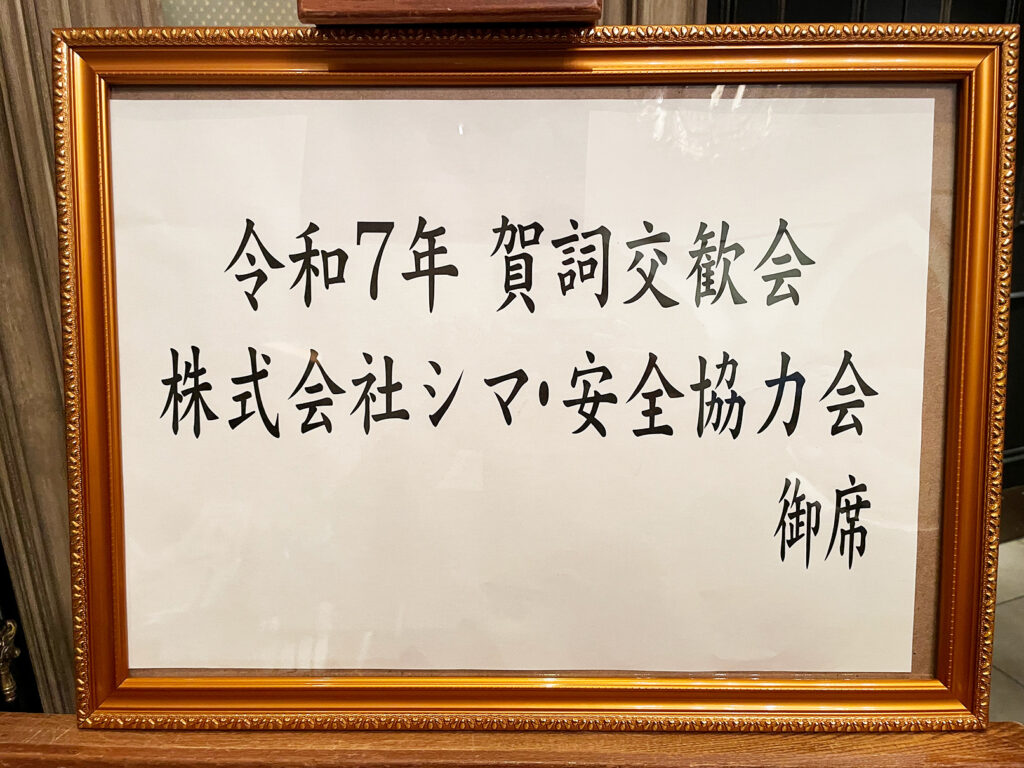 令和7年 賀詞交歓会
株式会社シマ・安全協力会
御席